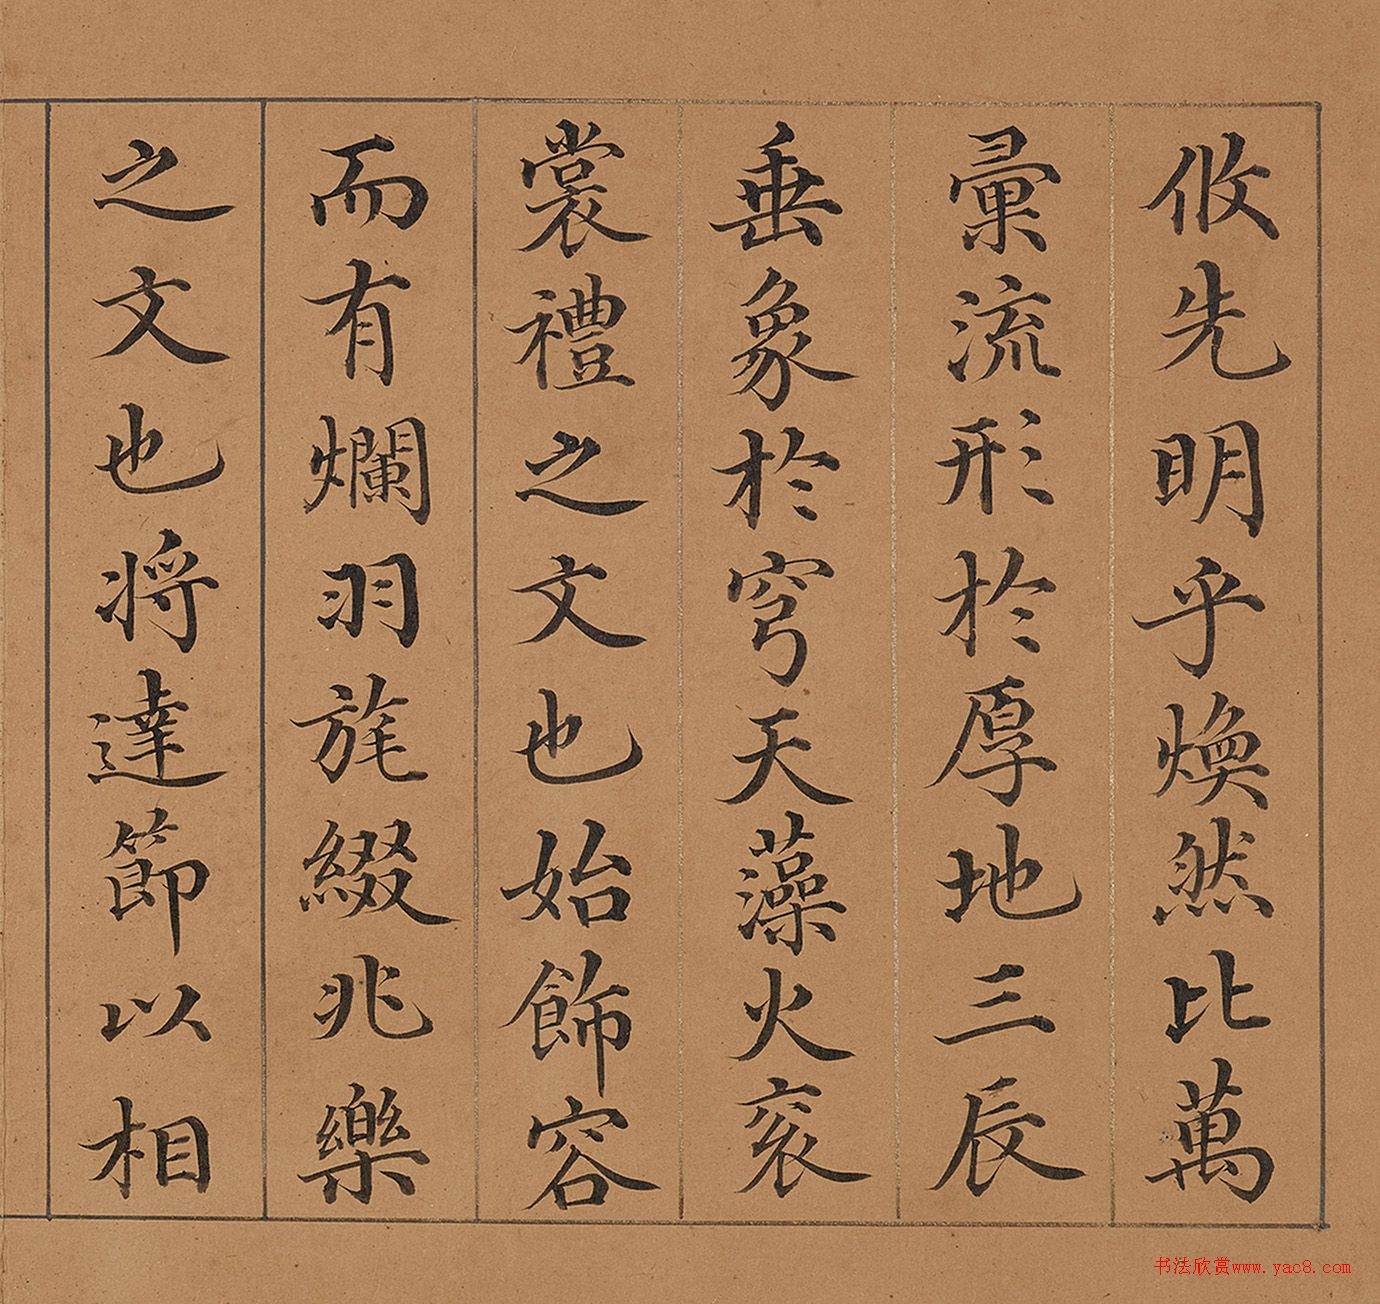 攸先明乎煥然比萬
彙流形於厚地三辰
垂象於穹天藻火袞
裳禮之文也始飾容
而有爛羽旄綴兆樂
之文也將達節以相
书法欣赏www.yac8.com